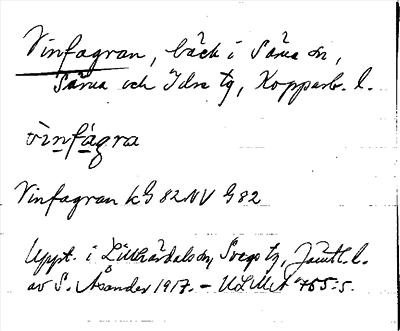 Vinfagran, bäck i Särna sn,
Särna och Idre tg, Kopparb. l.
vìnfágra
Vinfagran kG 82NV G82
Uppt. i Lillhärdals sn, Svegs tg, Jämtl. l.
av S. Åsander 1917. – ULMA 765:5.